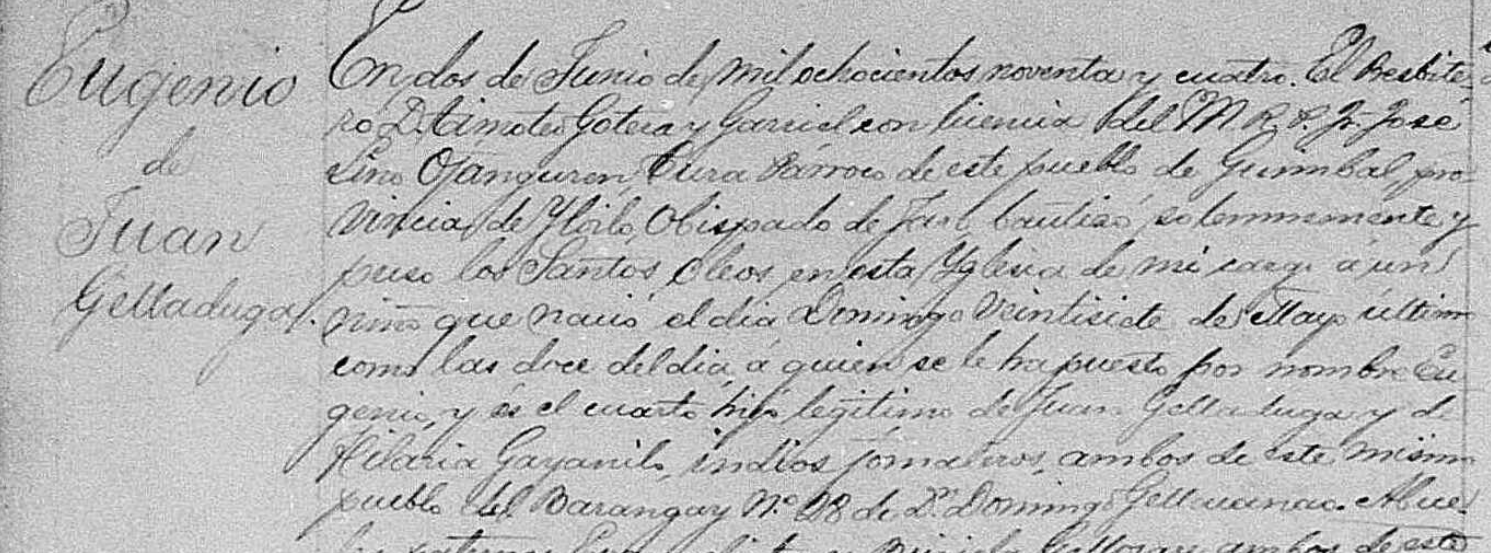 Eugenio
de
Juan
Gelladuga.
En dos de Junio de mil ochocientos noventa y cuatro. El Presbite-
ro D. Timoteo Gotera y Garriel con licencia del M. R. P. Fr. José
Lino Ojanguren, Cura Párroco de este pueblo de Guimbal, pro-
vincia de Yloilo, Obispado de Jaro, bautizó solemnemente y
puso los Santos Oleos en esta Yglesia de mi cargo á un
niño que nació el dia Domingo Veintisiete de Mayo último
como las doce del dia, á quien se le ha puesto por nombre Eu
genio, y és el cuarto hijo legitimo de Juan Gelladuga y de
Hilaria Gayanilo, indios jornaleros, ambos de este mismo
pueblo del Barangay N.º 28 de D.n Domingo Abue-
paternos y ambos de este